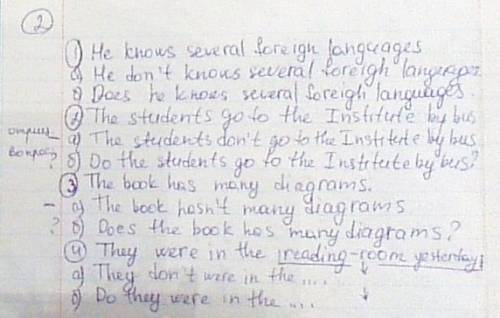 2
1) He knows several foreign languages
а) He don't knows several foreigh languages
б) Does he knows several foreigh languages
2) The students go to the Institute by bus
отриц – а) The students don't go to the Institute by bus
вопрос ? б) Do the students go to the Institute by bus?
3) The book has many diagrams.
– а) The book hasn't many diagrams
? б) Does the book has many diagrams?
4) They were in the reading-room yesterday
а) They don't were in the ....
б) Do they were in the ...